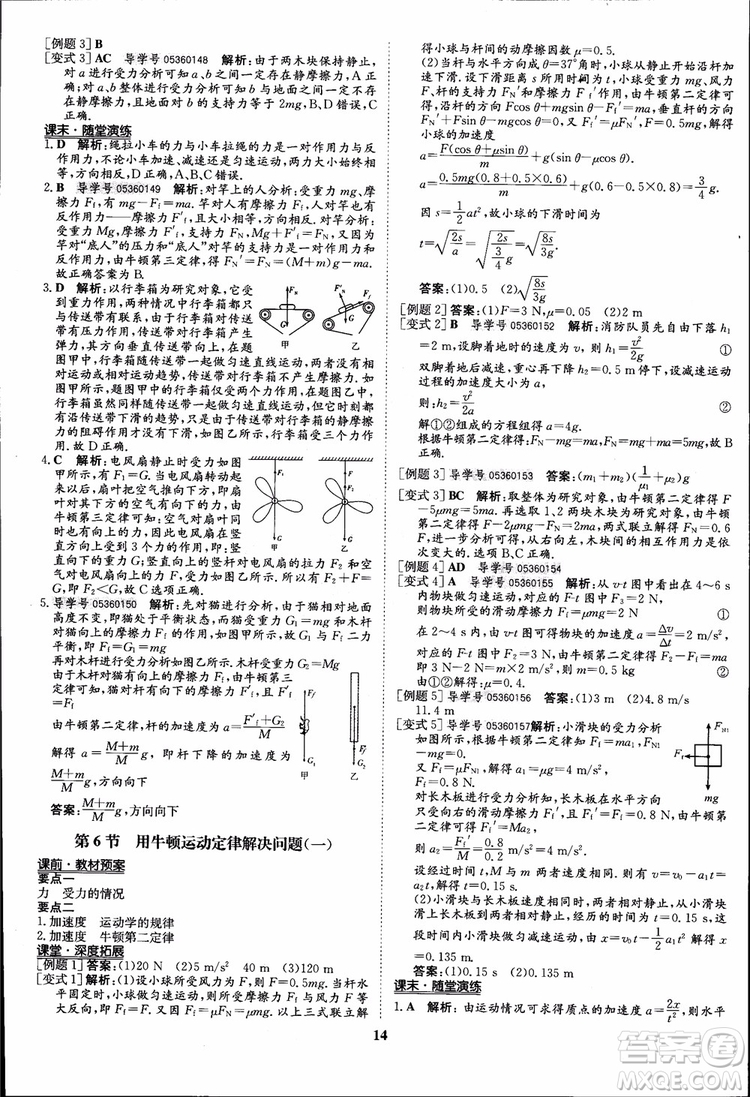 [例题3] B
[变式3] AC 导学号 05360148 解析：由于两木块保持静止，
对a进行受力分析可知a、b之间一定存在静摩擦力，A正
确；对a、b整体进行受力分析可知b与地面之间一定存在
静摩擦力，地面对b的支持力等于2mg，B、D错误，C
正确．
课末·随堂演练
1. D 解析：绳拉小车的力与小车拉绳的力是一对作用力与反
作用力，不论加速、减速还是匀速运动，两力大小始终
相等．
2. B 导学号 05360149 解析：对竿上的人分析：受重力mg、摩
擦力Ff，有mg－Ff＝ma，得Ff＝m(g－a)．竿对人有摩擦
力，人对竿也有反作用力——摩擦力F′f，且大小相等，方向
相反．对竿分析：受重力Mg、竿上的人对竿向下的摩擦力
F′f、顶竿的人对竿的支持力FN，有Mg＋F′f＝FN，又因为
竿对“底人”的压力和“底人”对竿的支持力是一对作用力与
反作用力，由牛顿第三定律，得FN′＝FN＝(M＋m)g－ma．
故此题正确答案为B.
3. D 解析：以行李箱为研究对象，它受
到的力一定有重力与弹力，关键是行李箱
与传送带间有没有摩擦力．假设行李箱
与传送带没有摩擦力，即只有重力与
弹力，其方向是垂直于传送带的．在题
图甲中，行李箱仍能做匀速直线运动，行李箱与传送带没有
相对运动或相对运动趋势，传送带对行李箱不产生摩擦力，
即题图甲中的行李箱只受两个力作用；而在题图乙中，行李
箱虽然与传送带一起做匀速直线运动，但行李箱相对传送带
有沿传送带下滑的趋势，所以，传送带对行李箱有沿传送带
向上的阻碍作用，即在题图乙中，行李箱受到三个力的
作用．故D正确．
4. C 解析：电风扇静止时受力如图
甲所示，F1＝G，当电风扇转动
起来以后，扇叶把空气推向下方，
扇叶对空气有向下的推力，根据
牛顿第三定律，空气对扇叶有向
上的反作用力，此时，电风扇在竖
直方向上受3个力的作用，即：竖
直向下的重力、竖直向上的电风扇绳对电风扇的拉力F2和
空气对扇叶竖直向上的推力F3，由平衡条件得F2＋F3＝G，
即F2<G，故C选项正确．
5. 导学号 05360150 解析：先对猫进行分析，由于猫相对地面
高度不变，即猫处于平衡状态，而猫受重力G1＝mg和木杆
对猫向上的摩擦力Ff的作用，如图甲所示，故G1与Ff二力
平衡，即Ff＝G1＝mg①
再对木杆进行受力分析如图乙所示．木杆受重力G2＝Mg
作用，由于木杆对猫有向上的摩擦力Ff，由
牛顿第三定律可知，猫对杆有向下的摩擦力
F′f，且F′f＝Ff②
由牛顿第二定律，杆的加速度为a＝F′f＋G2/M③
解得a＝M＋m/M g，即杆下降的加速度为
M＋m/M g，方向向下．
答案：M＋m/M g，方向向下
甲 乙
第6节 用牛顿运动定律解决问题(一)
课前·教材预案
要点一
力 受力的情况
要点二
1. 加速度 运动学的规律
2. 加速度 牛顿第二定律
课堂·深度拓展
[例题1] 答案：(1)20 N (2)5 m/s² 40 m (3)120 m
[变式1] 解析：(1)设小球所受风力为F，则F＝0.5mg．当杆水
平固定时，小球做匀速运动，则所受摩擦力Ff与风力F等
大反向，Ff＝F．又因Ff＝μFN＝μmg．以上三式联立解
得小球与杆间的动摩擦因数μ＝0.5.
(2)当杆与水平方向成θ＝37°角时，小球从静止开始沿杆加
速下滑．设下滑距离s所用时间为t，小球受重力mg、风力
F、杆的支持力FN′和摩擦力Ff′作用，由牛顿第二定律可得，
沿杆的方向Fcos θ＋mgsin θ－Ff′＝ma，垂直杆的方向
FN′＋Fsin θ＝mgcos θ，又Ff′＝μFN′，F＝0.5mg，解得小
球的加速度
a＝F(cos θ＋μsin θ)/m＋g(sin θ－μcos θ)
a＝0.5mg(0.8＋0.5×0.6)/m＋g(0.6－0.5×0.8)＝3/4 g
因s＝1/2 at²，故小球的下滑时间为
t＝√(2s/a)＝√(2s/(3/4 g))＝√(8s/3g)
答案：(1)0.5 (2)√(8s/3g)
[例题2] 答案：(1)F＝3 N，μ＝0.05 (2)2 m
[变式2] B 导学号 05360152 解析：消防队员先自由下落h1
＝2 m，双脚着地时的速度为v，则h1＝v²/2g ①
双脚着地后减速，重心再下降0.5 m停下，设减速运动的加
速度为a，则：h2＝v²/2a ②
解①②组成的方程组得：a＝4g
由牛顿第二定律可得：FN－mg＝ma，所以FN＝5mg，B
正确．
[例题3] 导学号 05360153 答案：(m1＋m2)(1/μ1－μ2)g
[变式3] BC 解析：取整体为研究对象，由牛顿第二定律得F
－5μmg＝5ma．再选取1、2两块木块为研究对象，由牛顿
第二定律得FT－2μmg＝2ma，两式联立解得FT＝0.6
F，进一步分析可得，从右向左，木块间的相互作用力是依
次变大的．选项B、C正确．
[例题4] AD 导学号 05360154
[变式4] A 导学号 05360155 解析：从v-t图中看出在4～6 s
内物块做匀速运动，由F-t图中看出在该段时间F3＝2 N，
则物块所受的滑动摩擦力Ff＝μmg＝2 N ①
2～4 s内，由v-t图可得物块的加速度a＝Δv/Δt＝2 m/s²，
对应的力F2＝3 N，由牛顿第二定律得F2－Ff＝ma，
即3 N－2 N＝m×2 m/s² ②
由①②解得m＝0.5 kg，μ＝0.4.
[例题5] 导学号 05360156 答案：(1)3 m (2)4.8 m/s
11.4 m
[变式5] 导学号 05360157 解析：小滑块的受力分析
如图所示．由牛顿第二定律知Ff＝ma1，FN1
－mg＝0
又Ff＝μFN1，得a1＝μg＝4 m/s²
对长木板进行受力分析可知，长木板在水平方向
只受向右的滑动摩擦力Ff′，Ff′＝Ma2，
而Ff′＝Ff，得a2＝μmg/M＝4 m/s²
设经过时间t，M与m相对静止，则满足v0－a1t
＝a2t，故t＝0.15 s.
(2)小滑块与长木板速度相等时相对静止，从小滑块滑上
长木板到两者相对静止，经历的时间为t＝0.15 s，这
段时间内小滑块做匀减速运动，由s＝v0t－1/2 a1t²解得s
＝0.135 m.
答案：(1)0.15 s (2)0.135 m
课末·随堂演练
1. A 解析：由运动情况可求得质点的加速度a＝2x/t²，则水平
14
答案圈
MXQE.COM